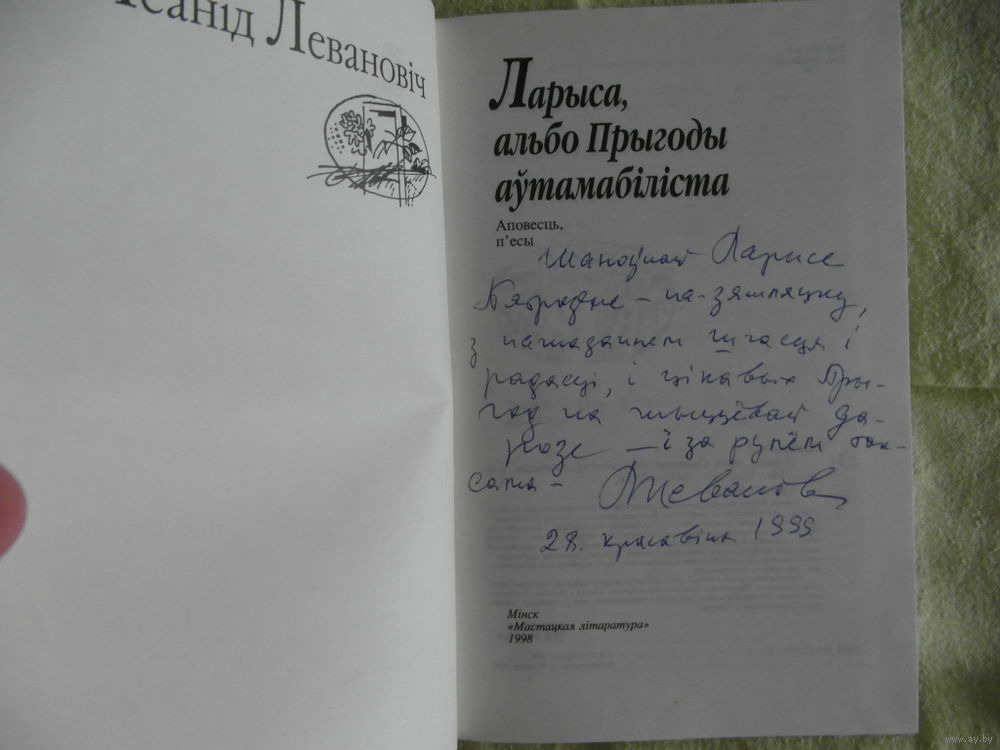 Леанід Левановіч
Ларыса,
альбо Прыгоды
аўтамабіліста
Аповесць,
п'есы
Шаноўнай Ларысе
– па-зямляцку,
з пажаданнем шчасця і
радасці, і цікавых пры-
год на жыццёвай да-
розе – і за рулём так-
сама –
28. красавіка 1999
Мінск
«Мастацкая літаратура»
1998
www.ay.by